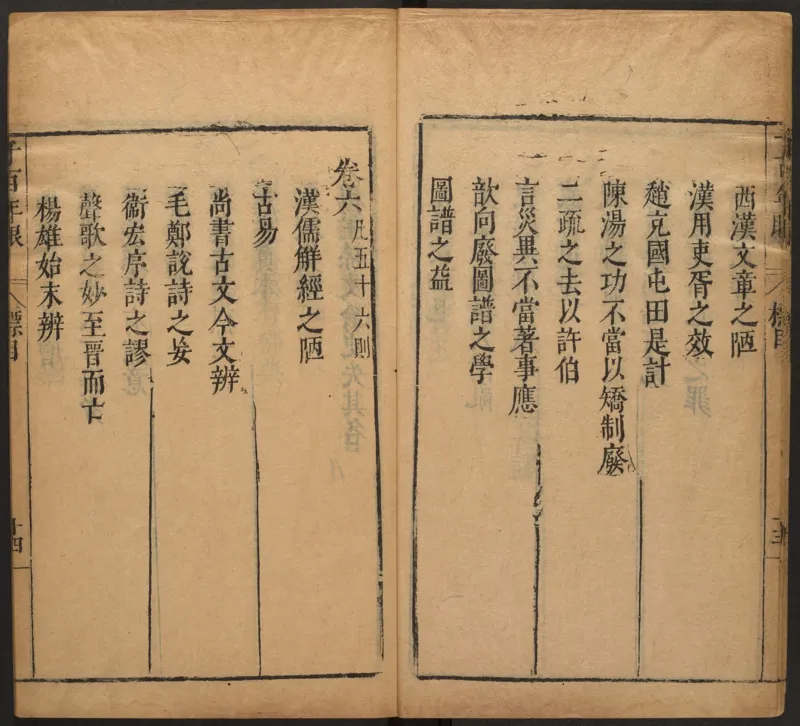 西漢文章之陋
漢用吏胥之效
趙充國屯田是計
陳湯之功不當以矯制廢
二疏之去以許伯
言災異不當著事應
歆向廢圖譜之學
圖譜之益
標目
卷六凡五十六則
漢儒解經之陋
古易
尚書古文今文辨
毛鄭說詩之妄
衞宏序詩之謬
聲歌之妙至晋而亡
楊雄始末辨
標目
十四